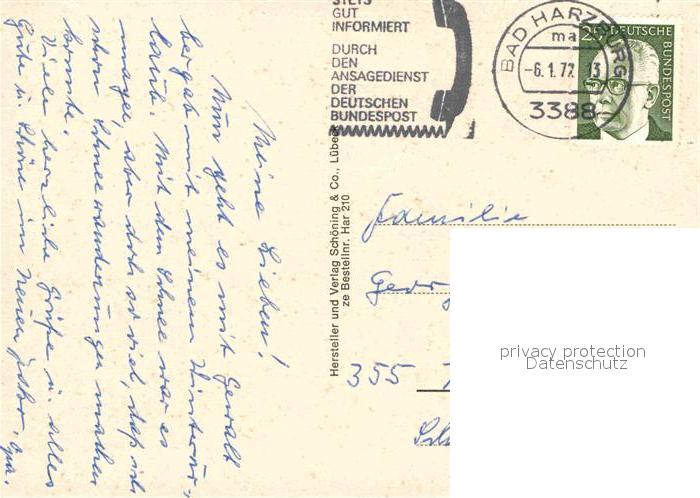 STETS
GUT
INFORMIERT
DURCH
DEN
ANSAGEDIENST
DER
DEUTSCHEN
BUNDESPOST
BAD HARZBURG
ma
-6.1.77 13
3388
DEUTSCHE
BUNDESPOST
Meine Lieben!
Nun geht es mit Gewalt
bergab mit meinem Winterur-
laub. Mit dem Schnee war es
mager, aber doch so viel, daß ich
schon Schneewanderungen machen
konnte.
Viele herzliche Grüße u. alles
Gute u. Schöne im Neuen Jahr,
Hersteller und Verlag Schöning & Co., Lübeck
ze Bestellnr. Har 210
Familie
Georg
355
privacy protection
Datenschutz